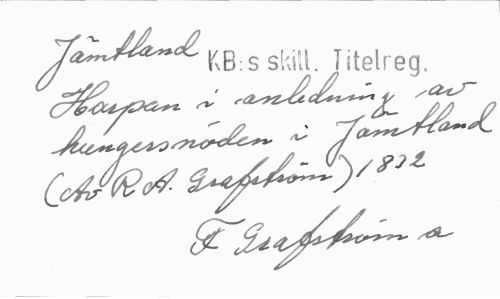 Jämtland KB:s skill. Titelreg.
Harpan i anledning av
hungersnöden i Jämtland
(Av R A. Grafström) 1832
F Grafström a